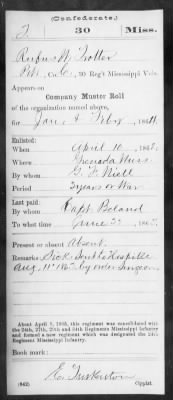 (Confederate.)
2 30 Miss.
Rufus W Trotter
Pvt, Co. C, 30 Reg't Mississippi Vols.
Appears on
Company Muster Roll
of the organization named above,
for Jan & Feby, 1864.
Enlisted:
When April 10, 186
Where Grenada Miss
By whom G. F. Neill
Period 3 years or War
Last paid:
By whom Capt. Boland
To what time June 30, 186
Present or absent Absent.
Remarks: Sick. Sent to Hospital
Aug. 11" 1863 by order Surgeon
About April 9, 1865, this regiment was consolidated with
the 24th, 27th, 29th and 34th Regiments Mississippi Infantry
and formed a new regiment which was designated the 24th
Regiment Mississippi Infantry.
Book mark:
(642) Copyist.